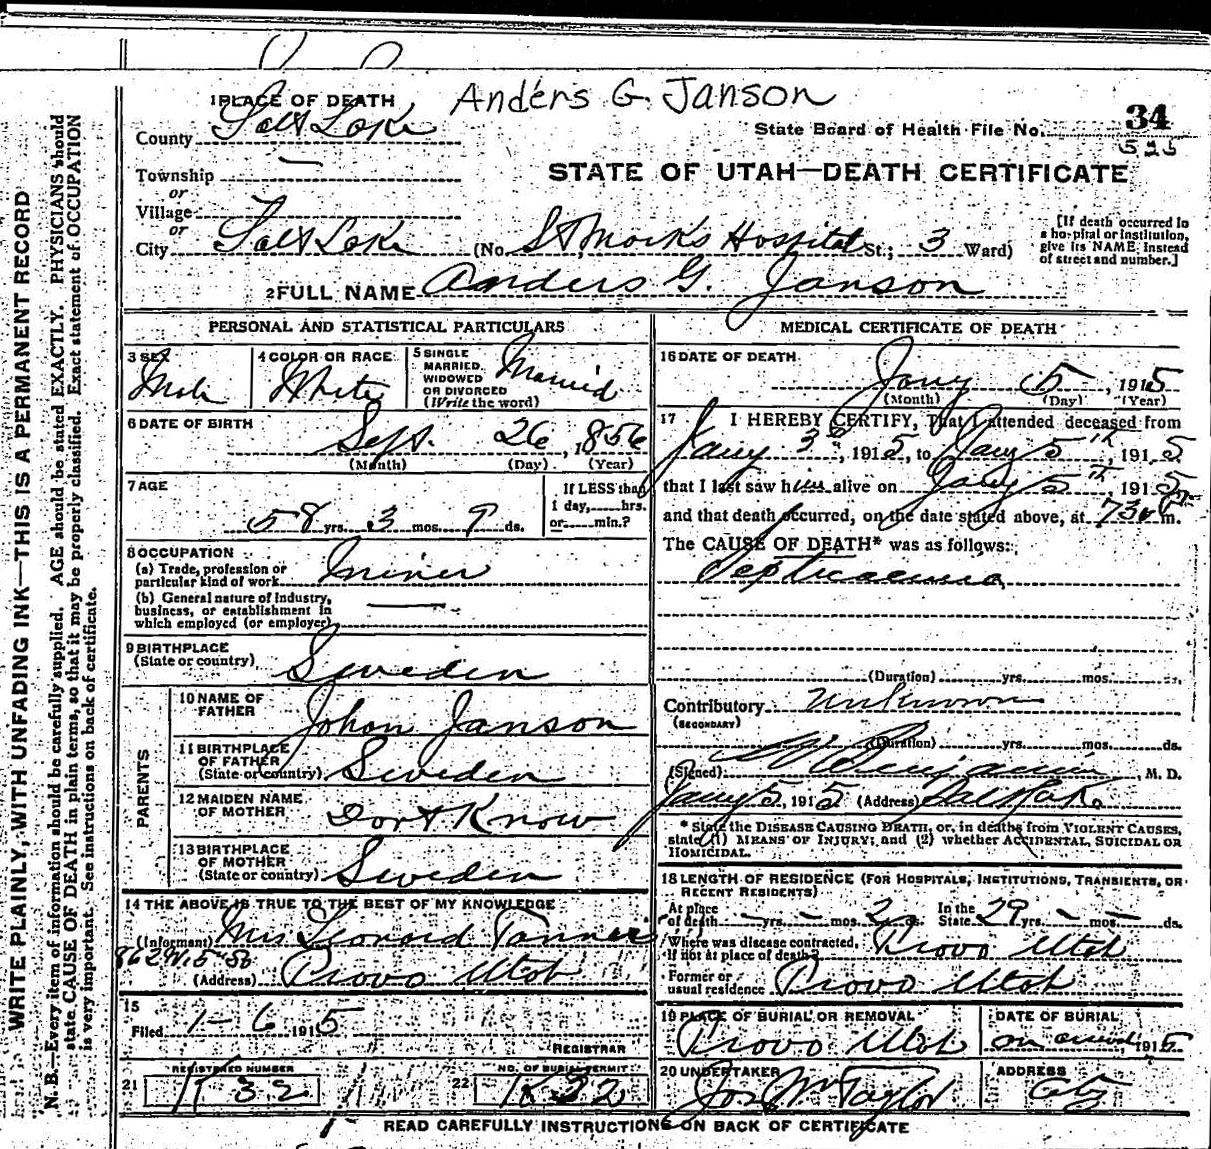 Anders G. Janson
1 PLACE OF DEATH
County Salt Lake
State Board of Health File No. 34
525
Township —
or
Village
or
City Salt Lake (No. St Marks Hospital St.; 3 Ward)
STATE OF UTAH—DEATH CERTIFICATE
[If death occurred in
a hospital or institution,
give its NAME, instead
of street and number.]
2 FULL NAME Anders G. Janson
PERSONAL AND STATISTICAL PARTICULARS
3 SEX
Male
4 COLOR OR RACE
White
5 SINGLE
MARRIED
WIDOWED
OR DIVORCED
(Write the word)
Married
6 DATE OF BIRTH
Sept. 26, 1856
(Month) (Day) (Year)
7 AGE
58 yrs. 3 mos. 9 ds.
If LESS than
1 day, hrs.
or min.?
8 OCCUPATION
(a) Trade, profession or
particular kind of work Miner
(b) General nature of industry,
business, or establishment in
which employed (or employer) —
9 BIRTHPLACE
(State or country) Sweden
PARENTS
10 NAME OF
FATHER Johan Janson
11 BIRTHPLACE
OF FATHER
(State or country) Sweden
12 MAIDEN NAME
OF MOTHER Dont Know
13 BIRTHPLACE
OF MOTHER
(State or country) Sweden
14 THE ABOVE IS TRUE TO THE BEST OF MY KNOWLEDGE
(Informant) Mrs Leonard Tanner
862 W. 5 So
(Address) Provo Utah
15
Filed 1-6 1915
REGISTRAR
21 REGISTERED NUMBER
K 32
22 NO. OF BURIAL PERMIT
K 32
MEDICAL CERTIFICATE OF DEATH
16 DATE OF DEATH
Jany 5, 1915
(Month) (Day) (Year)
17 I HEREBY CERTIFY, That I attended deceased from
Jany 3d, 1915, to Jany 5th, 1915
that I last saw him alive on Jany 5th, 1915
and that death occurred, on the date stated above, at 730 P m.
The CAUSE OF DEATH* was as follows:
Septicaemia
(Duration) yrs. mos. ds.
Contributory Unknown
(SECONDARY)
(Duration) yrs. mos. ds.
(Signed) Benjamin, M. D.
Jany 5, 1915 (Address) Salt Lake
* State the DISEASE CAUSING DEATH, or, in deaths from VIOLENT CAUSES,
state (1) MEANS OF INJURY; and (2) whether ACCIDENTAL, SUICIDAL OR
HOMICIDAL.
18 LENGTH OF RESIDENCE (FOR HOSPITALS, INSTITUTIONS, TRANSIENTS, OR
RECENT RESIDENTS)
At place
of death — yrs. — mos. 2 ds. In the
State 29 yrs. — mos. — ds.
Where was disease contracted,
if not at place of death? Provo Utah
Former or
usual residence Provo Utah
19 PLACE OF BURIAL OR REMOVAL
Provo Utah
DATE OF BURIAL
on arrival, 1915
20 UNDERTAKER
Jos Wm Taylor
ADDRESS
City
READ CAREFULLY INSTRUCTIONS ON BACK OF CERTIFICATE
WRITE PLAINLY, WITH UNFADING INK—THIS IS A PERMANENT RECORD
N. B.—Every item of information should be carefully supplied. AGE should be stated EXACTLY. PHYSICIANS should
state CAUSE OF DEATH in plain terms, so that it may be properly classified. Exact statement of OCCUPATION
is very important. See instructions on back of certificate.